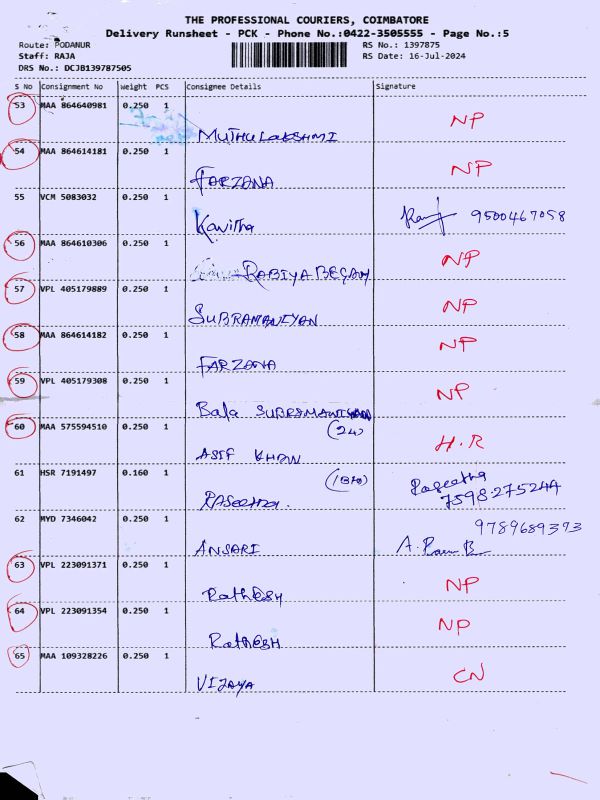 THE PROFESSIONAL COURIERS, COIMBATORE
Delivery Runsheet - PCK - Phone No.:0422-3505555 - Page No.:5
Route: PODANUR RS No.: 1397875
Staff: RAJA RS Date: 16-Jul-2024
DRS No.: DCJB139787505
S No Consignment No Weight PCS Consignee Details Signature
53 MAA 864640981 0.250 1 MUTHULAKSHMI NP
54 MAA 864614181 0.250 1 FARZANA NP
55 VCM 5083032 0.250 1 Kavitha 9500467058
56 MAA 864610306 0.250 1 RABIYA BEGAM NP
57 VPL 405179889 0.250 1 SUBRAMANIYAN NP
58 MAA 864614182 0.250 1 FARZANA NP
59 VPL 405179308 0.250 1 Bala SUBRAMANIYAN NP
60 MAA 575594510 0.250 1 (24) ASIF KHAN H.R
61 HSR 7191497 0.160 1 RASeetha. Raseetha
7598275244
62 MYD 7346042 0.250 1 ANSARI 9789689373
63 VPL 223091371 0.250 1 RathESH NP
64 VPL 223091354 0.250 1 RathESH NP
65 MAA 109328226 0.250 1 VIJAYA CN